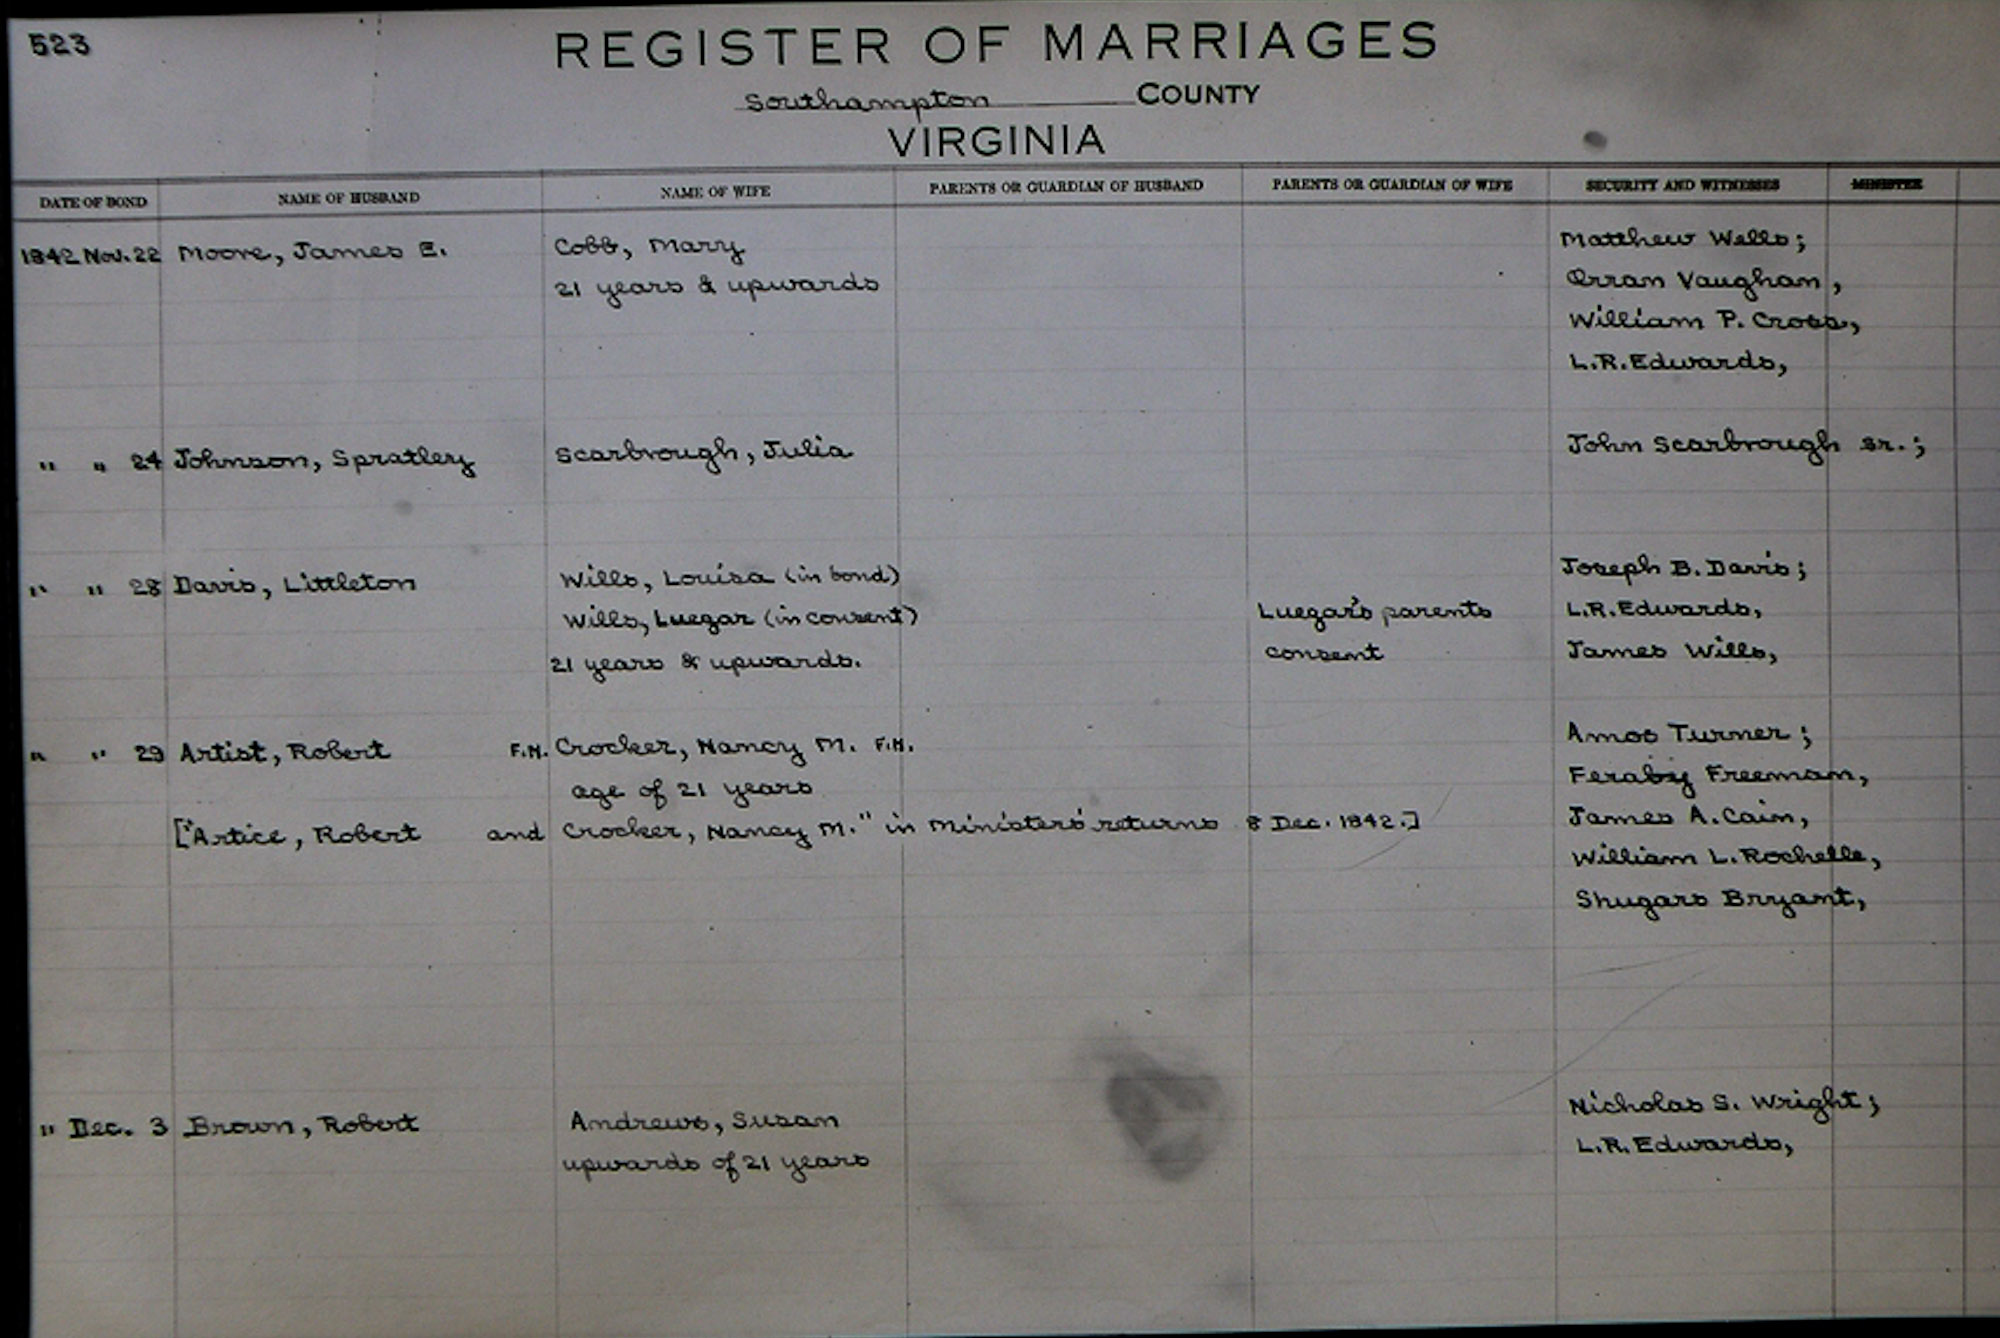 523
REGISTER OF MARRIAGES
Southampton COUNTY
VIRGINIA
DATE OF BOND NAME OF HUSBAND NAME OF WIFE PARENTS OR GUARDIAN OF HUSBAND PARENTS OR GUARDIAN OF WIFE SECURITY AND WITNESSES MINISTER
1842 Nov. 22 Moore, James E. Cobb, Mary Matthew Wells;
21 years & upwards Orran Vaughan,
William P. Cross,
L.R. Edwards,
" " 24 Johnson, Spratley Scarbrough, Julia John Scarbrough Sr.;
" " 28 Davis, Littleton Wills, Louisa (in bond) Joseph B. Davis;
Wills, Luegar (in consent) Luegar's parents L.R. Edwards,
21 years & upwards. consent James Wills,
" " 29 Artist, Robert F.N. Crocker, Nancy M. F.N. Amos Turner;
age of 21 years Feraby Freeman,
["Artice, Robert and Crocker, Nancy M." in Ministers' returns 8 Dec. 1842.] James A. Cain,
William L. Rochelle,
Shugars Bryant,
" Dec. 3 Brown, Robert Andrews, Susan Nicholas S. Wright;
upwards of 21 years L.R. Edwards,